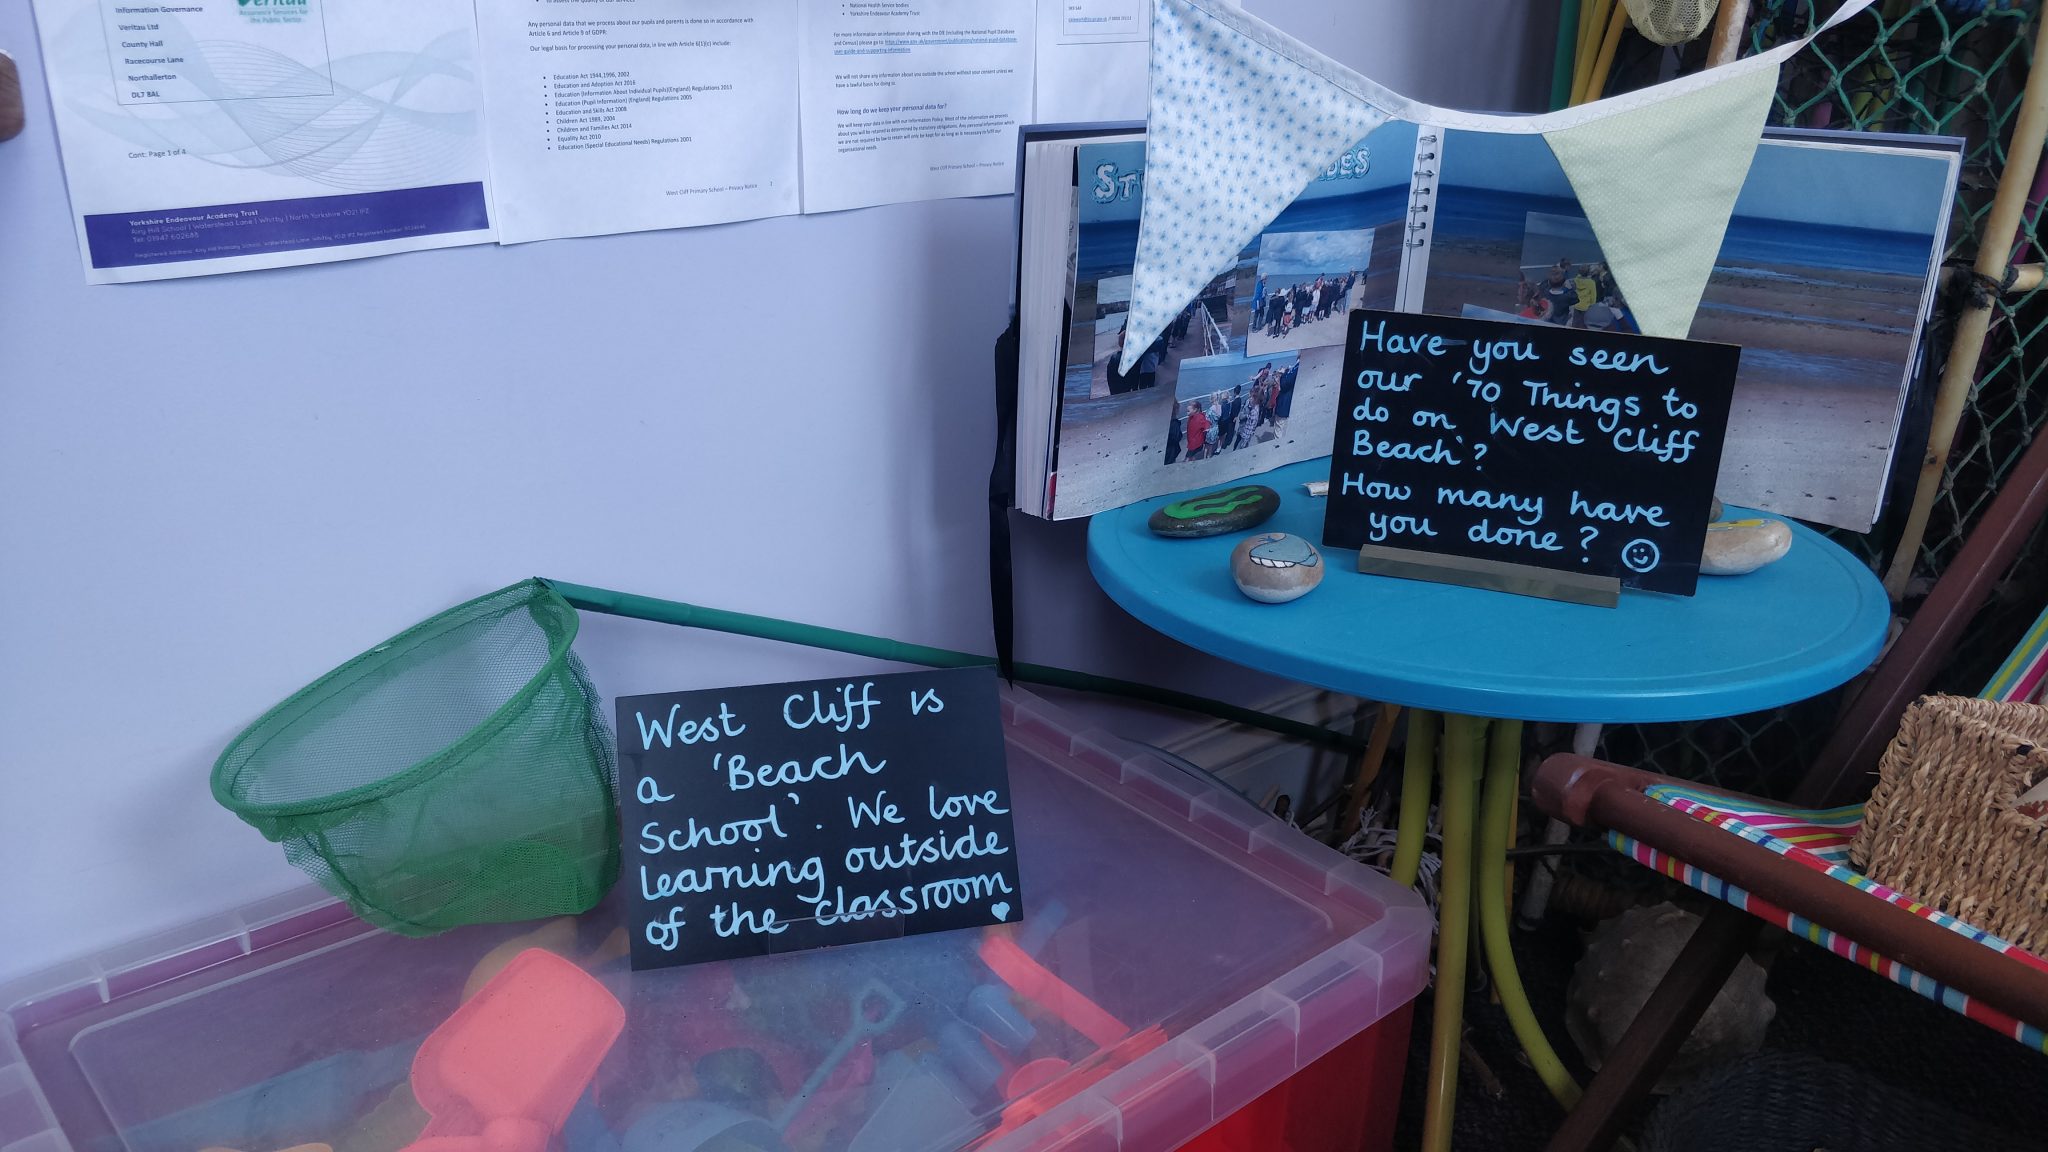 Information Governance
Veritau
Assurance Services for
the Public Sector
Veritau Ltd
County Hall
Racecourse Lane
Northallerton
DL7 8AL
Cont: Page 1 of 4
Yorkshire Endeavour Academy Trust
Airy Hill School | Waterstead Lane | Whitby | North Yorkshire YO21 1PZ
Tel: 01947 602688
Any personal data that we process about our pupils and parents is done so in accordance with
Article 6 and Article 9 of GDPR:
Our legal basis for processing your personal data, in line with Article 6(1)(c) include:
• Education Act 1944,1996, 2002
• Education and Adoption Act 2016
• Education (Information About Individual Pupils)(England) Regulations 2013
• Education (Pupil Information) (England) Regulations 2005
• Education and Skills Act 2008
• Children Act 1989, 2004
• Children and Families Act 2014
• Equality Act 2010
• Education (Special Educational Needs) Regulations 2001
West Cliff Primary School – Privacy Notice
• National Health Service bodies
• Yorkshire Endeavour Academy Trust
For more information on information sharing with the DfE (including the National Pupil Database
and Census) please go to:
We will not share any information about you outside the school without your consent unless we
have a lawful basis for doing so.
How long do we keep your personal data for?
We will keep your data in line with our Information Policy. Most of the information we process
about you will be retained as determined by statutory obligations. Any personal information which
we are not required by law to retain will only be kept for as long as is necessary to fulfil our
organisational needs.
West Cliff Primary School – Privacy Notice
Have you seen
our '70 Things to
do on West Cliff
Beach'?
How many have
you done? ☺
West Cliff is
a 'Beach
School'. We love
learning outside
of the classroom
♥